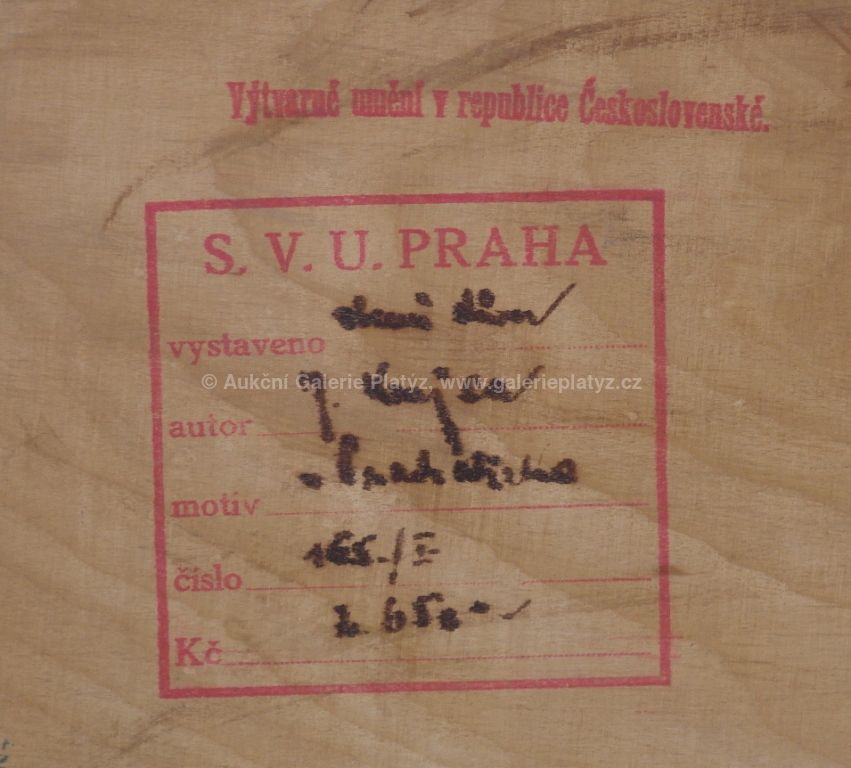 Výtvarné umění v republice Československé.
S. V. U. PRAHA
vystaveno
© Aukční Galerie Platýz, www.galerieplatyz.cz
autor J.
motiv
číslo 165./I
Kč 2 650.-